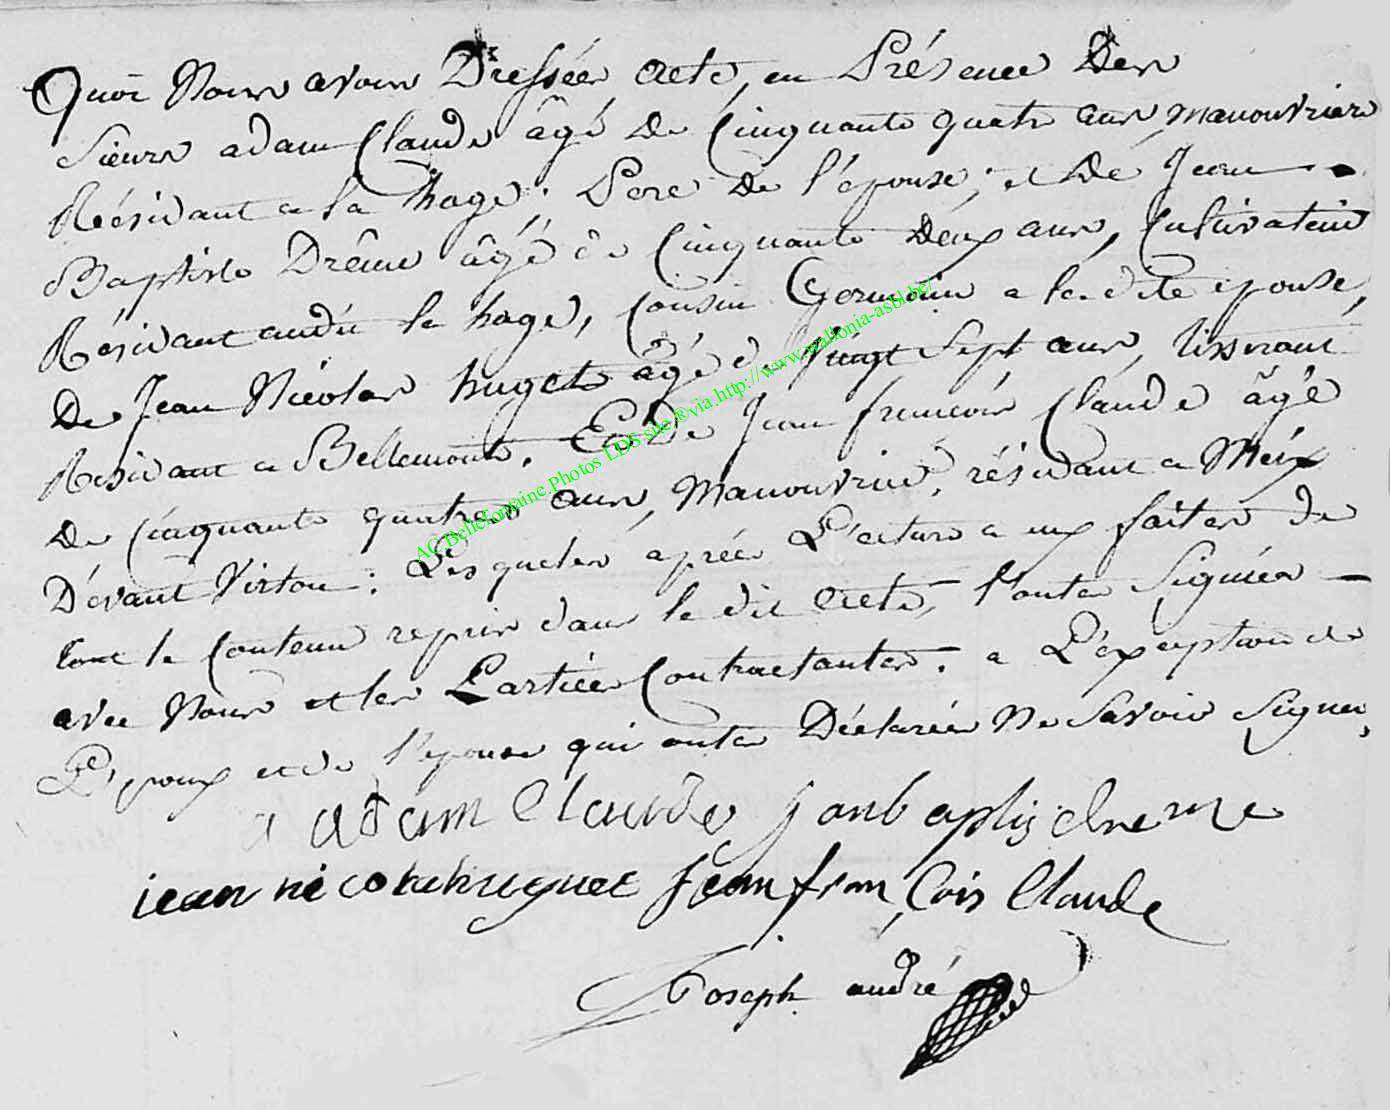 Quoi Nous avons Dressées Acte, en Présence Des
Sieurs adam Claude âgé de Cinquante quatre ans, manouvriere
Résidant a la hage. Pere de l'épouse; et de Jean
Baptiste Drême âgé de Cinquante deux ans, Cultivateur
Résidant audit la hage, Cousin Germain a la dite epouse,
De Jean Nicolas huget âgé de Vingt Sept ans, tisserant
Résidant a Bellemont. Et De Jean francois Claude âgé
de Cinquante quatres ans, Manouvrier, résidant a Méix
Dévant Virton; Lesqueles aprée L'ecture a eux faites de
tout le Contenu repris dans le dit Acte, l'ontes Signiés
avec Nous et les Partiées Contractantes. a L'éxeption de
L'Epoux et de l'epouse qui ontes Déclarées Ne Savoir Signer,
adam Claude janbaptis dreme
iean nicolas huguet Jean fran Cois Claude
Joseph andré
AC Bellefontaine Photos LDS site ®via http://www.wallonia-asbl.be/